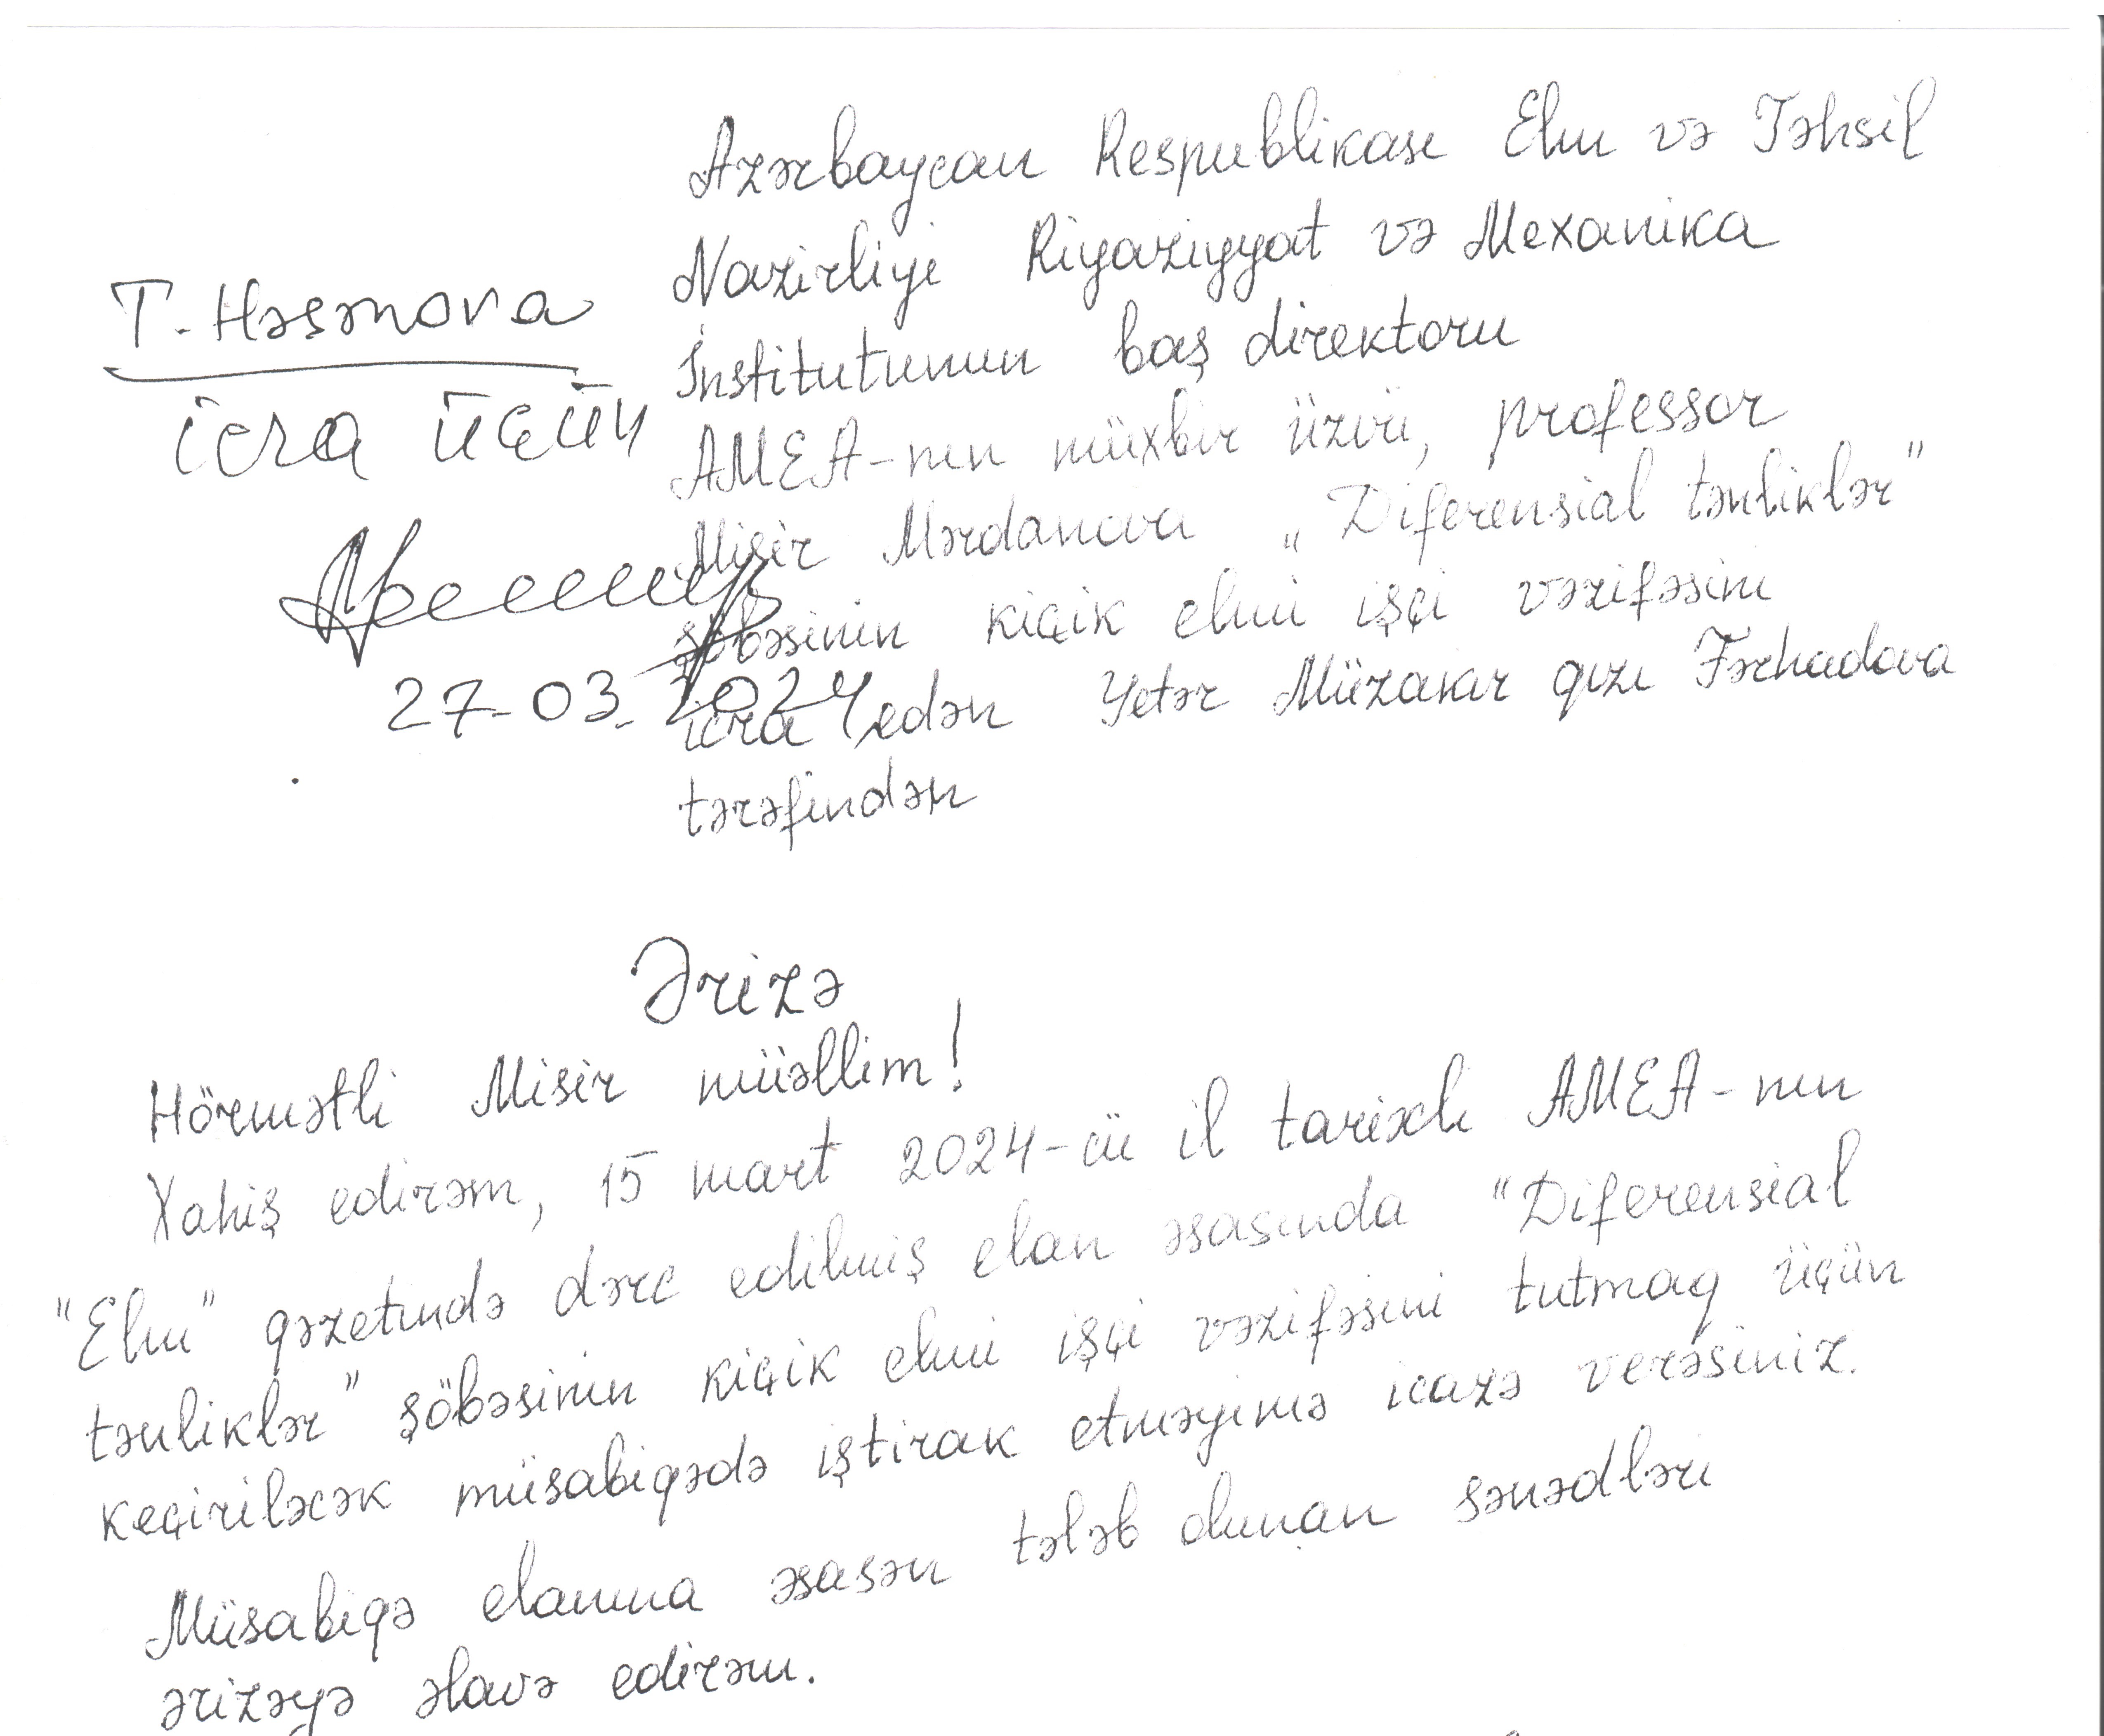 Azərbaycan Respublikası Elm və Təhsil
Nazirliyi Riyaziyyat və Mexanika
İnstitutunun baş direktoru
AMEA-nın müxbir üzvü, professor
Misir Mərdanova „Diferensial tənliklər"
şöbəsinin kiçik elmi işçi vəzifəsini
icra edən Yetər Müzakar qızı Fərhadova
tərəfindən
T. Həsənova
icra üçün
27-03-2024
Ərizə
Hörmətli Misir müəllim!
Xahiş edirəm, 15 mart 2024-cü il tarixli AMEA-nın
"Elm" qəzetində dərc edilmiş elan əsasında "Diferensial
tənliklər" şöbəsinin kiçik elmi işçi vəzifəsini tutmaq üçün
keçiriləcək müsabiqədə iştirak etməyimə icazə verəsiniz.
Müsabiqə elanına əsasən tələb olunan sənədləri
ərizəyə əlavə edirəm.